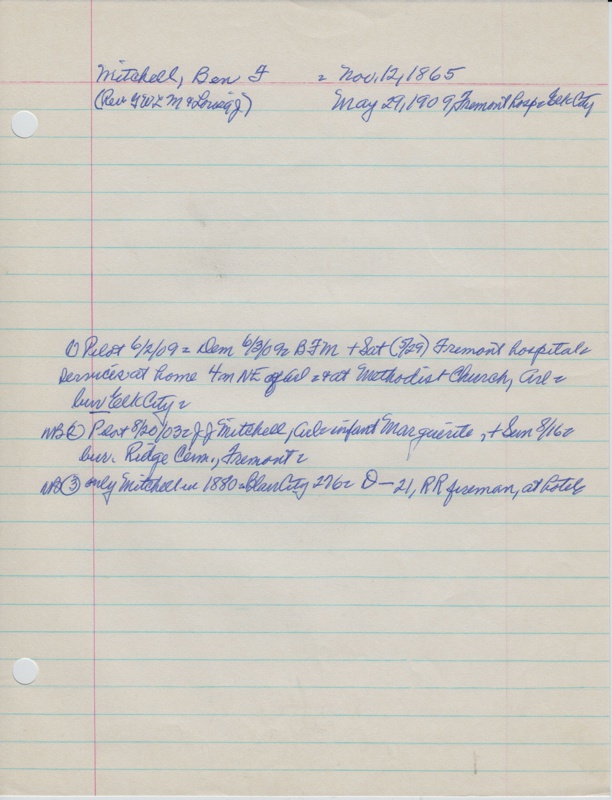 Mitchell, Ben F = Nov. 12, 1865
(Rev GWL M & Louisa J) May 29, 1909, Fremont hosp = Elk City
① Pilot 6/2/09 = Dem 6/3/09 = BFM + Sat (5/29) Fremont hospital =
services at home 4 m NE of Arl = & at Methodist Church, Arl =
bur Elk City =
NB ② Pilot 8/20/03 = J J Mitchell, Arl = infant Marguerite, + Sun 8/16 =
bur. Ridge Cem., Fremont =
NB ③ only Mitchell in 1880 = Blair City 276 = O — 21, RR fireman, at hotel =